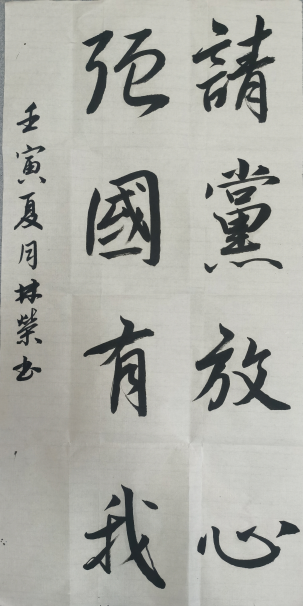 請黨放心
强國有我
壬寅夏月林榮书